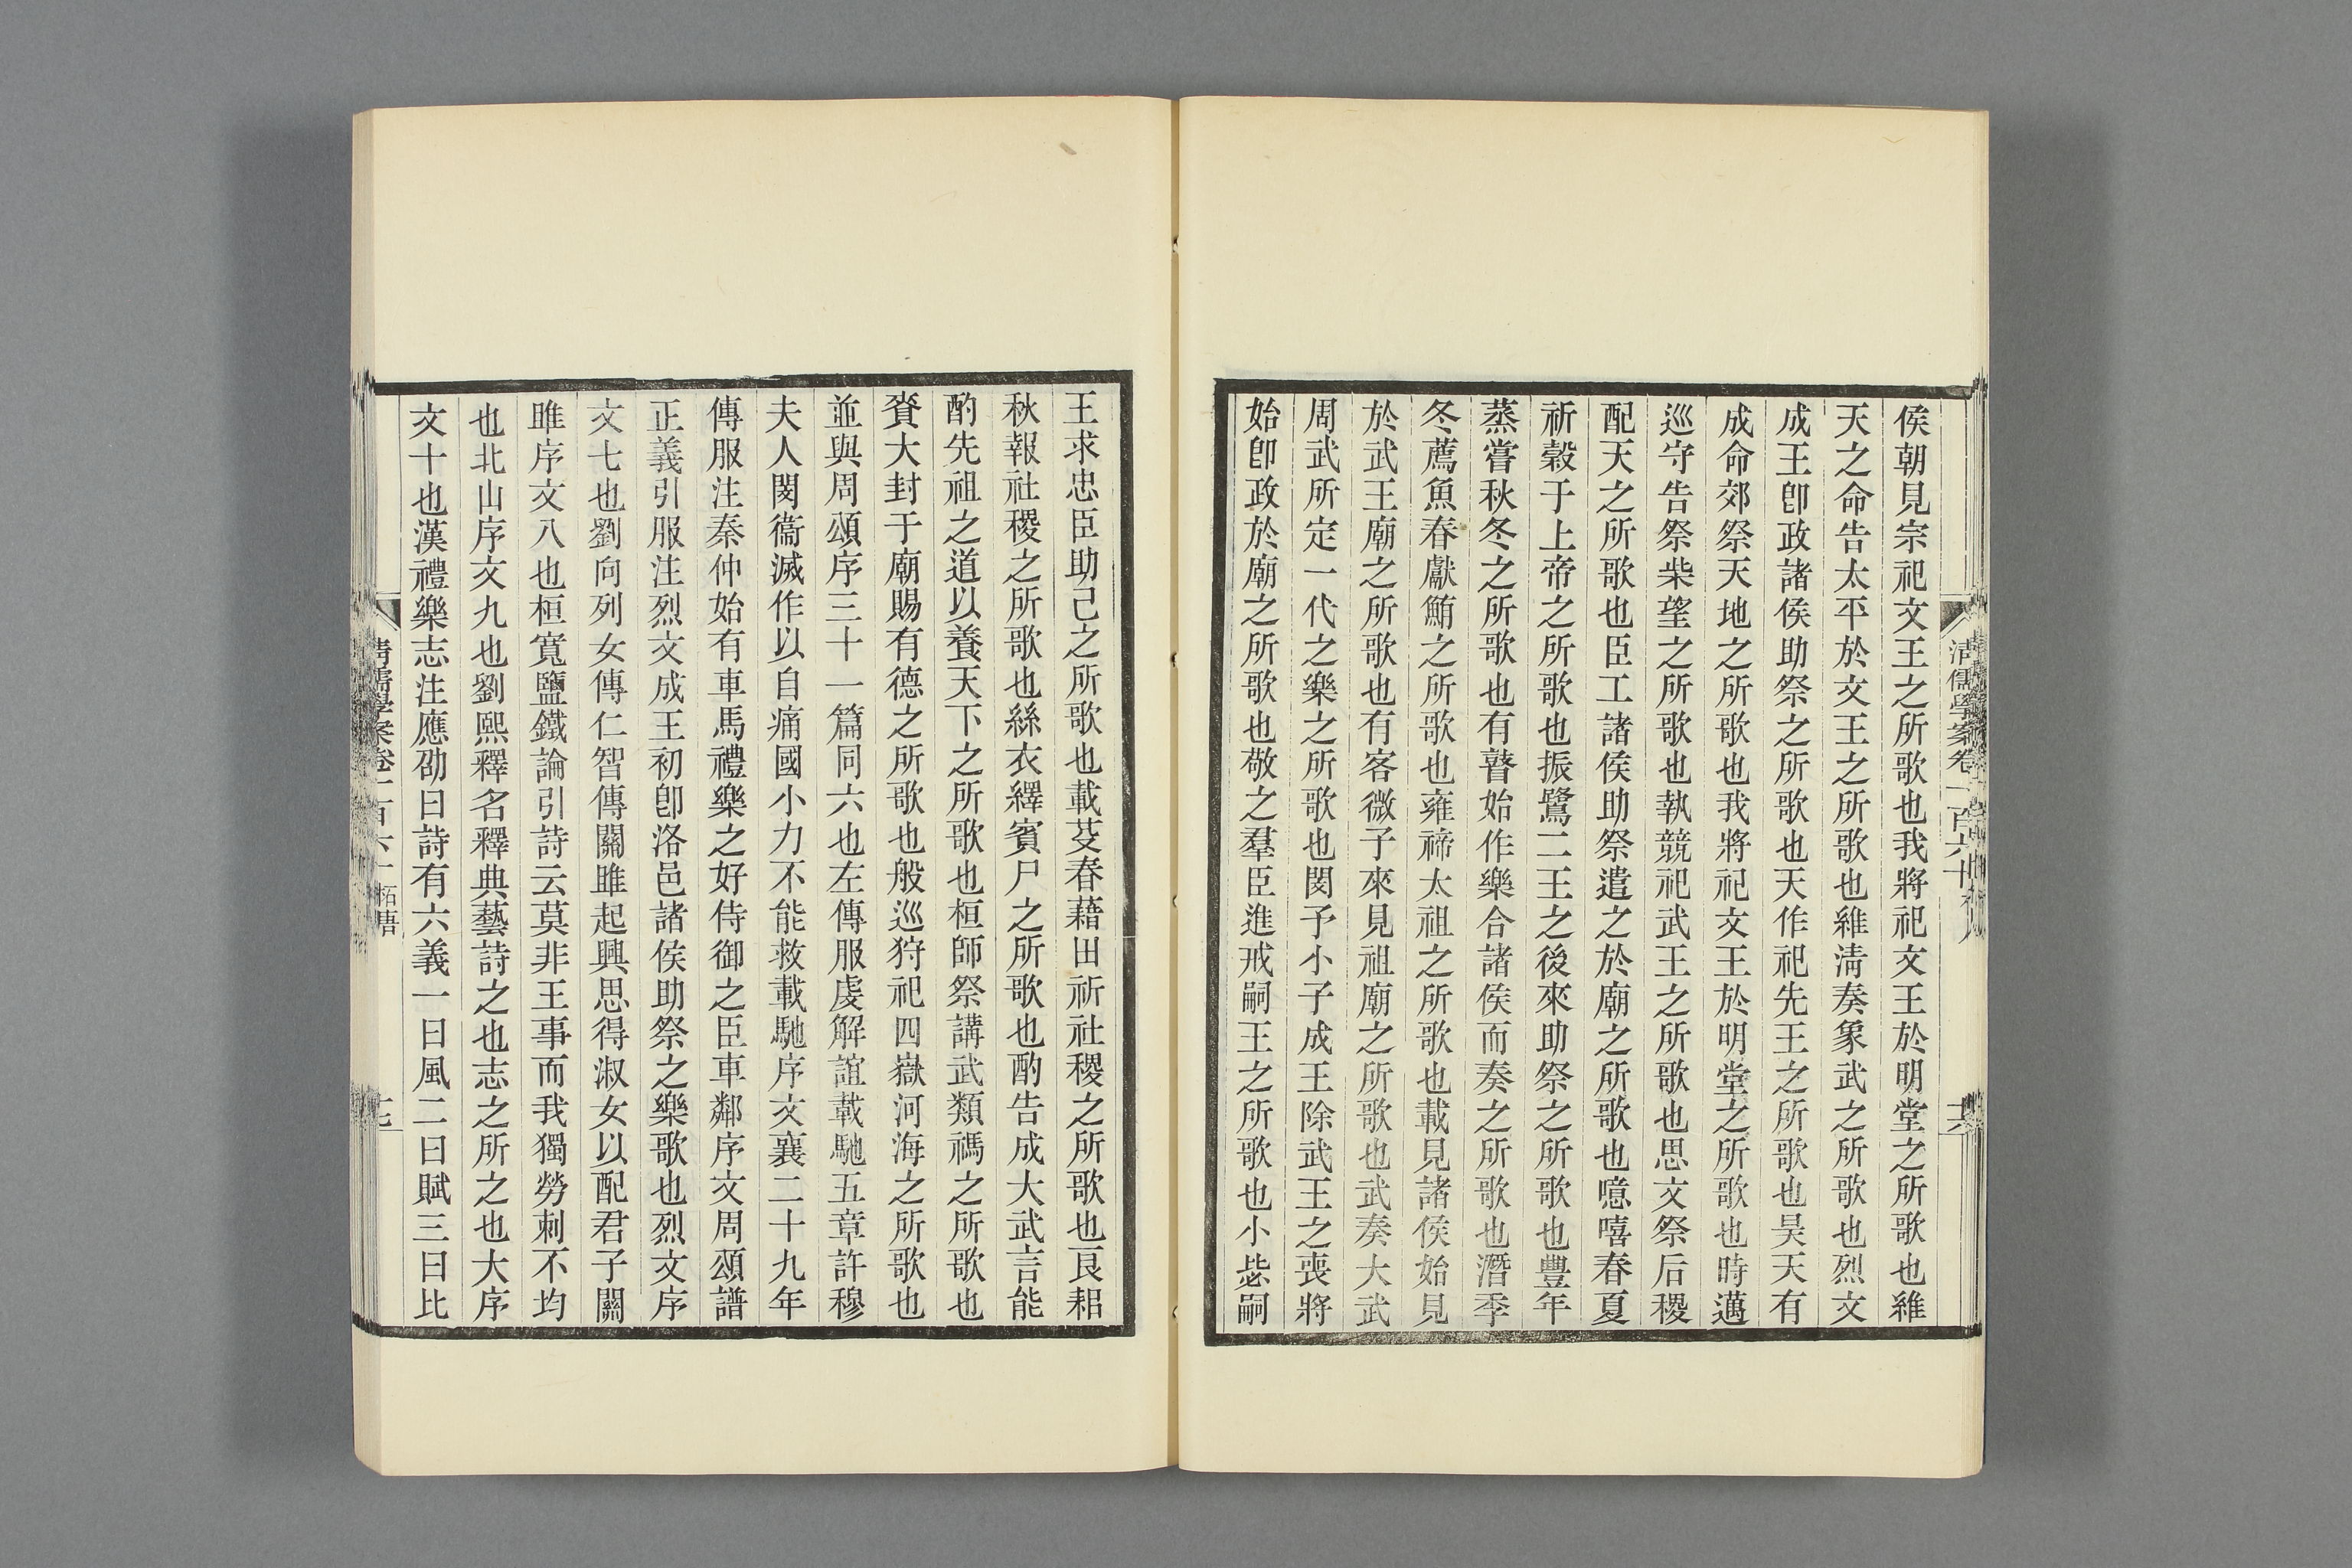 侯朝見宗祀文王之所歌也我將祀文王於明堂之所歌也維
天之命告太平於文王之所歌也維清奏象武之所歌也烈文
成王卽政諸侯助祭之所歌也天作祀先王之所歌也昊天有
成命郊祭天地之所歌也我將祀文王於明堂之所歌也時邁
巡守告祭柴望之所歌也執競祀武王之所歌也思文祭后稷
配天之所歌也臣工諸侯助祭遣之於廟之所歌也噫嘻春夏
祈穀于上帝之所歌也振鷺二王之後來助祭之所歌也豐年
蒸嘗秋冬之所歌也有瞽始作樂合諸侯而奏之所歌也潛季
冬薦魚春獻鮪之所歌也雍禘太祖之所歌也載見諸侯始見
於武王廟之所歌也有客微子來見祖廟之所歌也武奏大武
周武所定一代之樂之所歌也閔予小子成王除武王之喪將
始卽政於廟之所歌也敬之羣臣進戒嗣王之所歌也小毖嗣
王求忠臣助己之所歌也載芟春藉田祈社稷之所歌也良耜
秋報社稷之所歌也絲衣繹賓尸之所歌也酌告成大武言能
酌先祖之道以養天下之所歌也桓師祭講武類禡之所歌也
賚大封于廟賜有德之所歌也般巡狩祀四嶽河海之所歌也
並與周頌序三十一篇同六也左傳服虔解誼載馳五章許穆
夫人閔衞滅作以自痛國小力不能救載馳序文襄二十九年
傳服注秦仲始有車馬禮樂之好侍御之臣車鄰序文周頌譜
正義引服注烈文成王初卽洛邑諸侯助祭之樂歌也烈文序
文七也劉向列女傳仁智傳關雎起興思得淑女以配君子關
雎序文八也桓寬鹽鐵論引詩云莫非王事而我獨勞刺不均
也北山序文九也劉熙釋名釋典藝詩之也志之所之也大序
文十也漢禮樂志注應劭曰詩有六義一曰風二曰賦三曰比